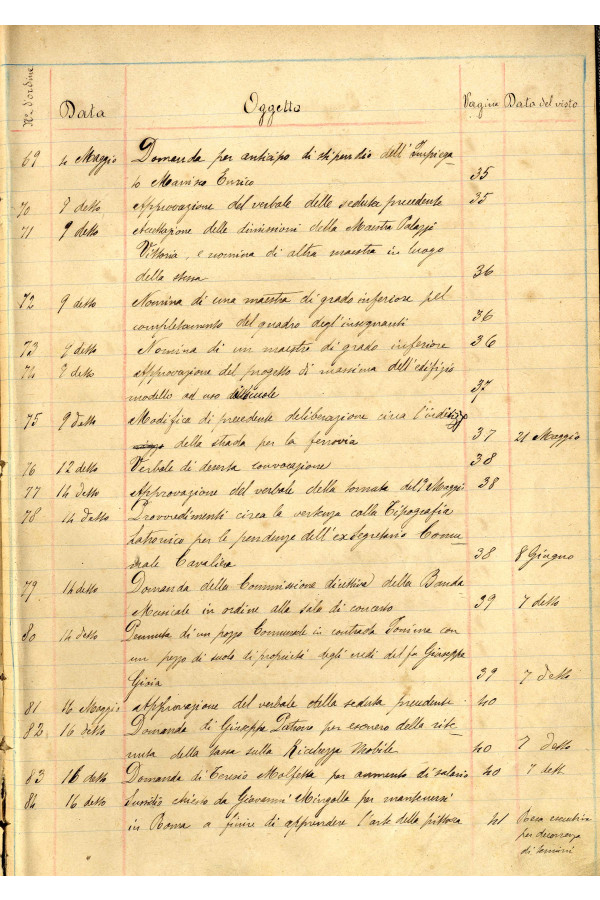 No. d'ordine Data Oggetto Pagina Data del visto
69 4 Maggio Domanda per anticipo di stipendio dell'Impiega-
to Marrisa Enrico 35
70 9 detto Approvazione del verbale delle seduta precedente 35
71 9 detto Accettazione delle dimissioni della Maestra Palazzi
Vittoria, e nomina di altra maestra in luogo
della stessa 36
72 9 detto Nomina di una maestra di grado inferiore pel
completamento del quadro degl'insegnanti 36
73 9 detto Nomina di un maestro di grado inferiore 36
74 9 detto Approvazione del progetto di massima dell'edifizio
modello ad uso scuole 37
75 9 detto Modifica di precedente deliberazione circa
della strada per la ferrovia 37 21 Maggio
76 12 detto Verbale di deserta convocazione 38
77 14 detto Approvazione del verbale della tornata del 9 Maggio 38
78 14 detto Provvedimenti circa la vertenza colla Tipografia
per le pendenze dell'exsegretario Comu-
nale Cavaliera 38 8 Giugno
79 14 detto Domanda della Commissione direttiva della Banda
Musicale in ordine alla sala di concerto 39 7 detto
80 14 detto Permuta di un pozzo Comunale in contrada con
un pezzo di suolo di proprietà degli eredi del fu Giuseppe
Gioia 39 7 detto
81 16 Maggio Approvazione del verbale della seduta precedente 40
82 16 detto Domanda di Giuseppe Pietroso per esonero della rite-
nuta della tassa sulla Ricchezza Mobile 40 7 detto
83 16 detto Domanda di Teresio Molfetta per aumento di salario 40 7 dett.
84 16 detto Sussidio chiesto da Giovanni Mingolla per mantenersi
in Roma a finire di apprendere l'arte della pittura 41 Resa esecutiva
per decorrenza
di termini